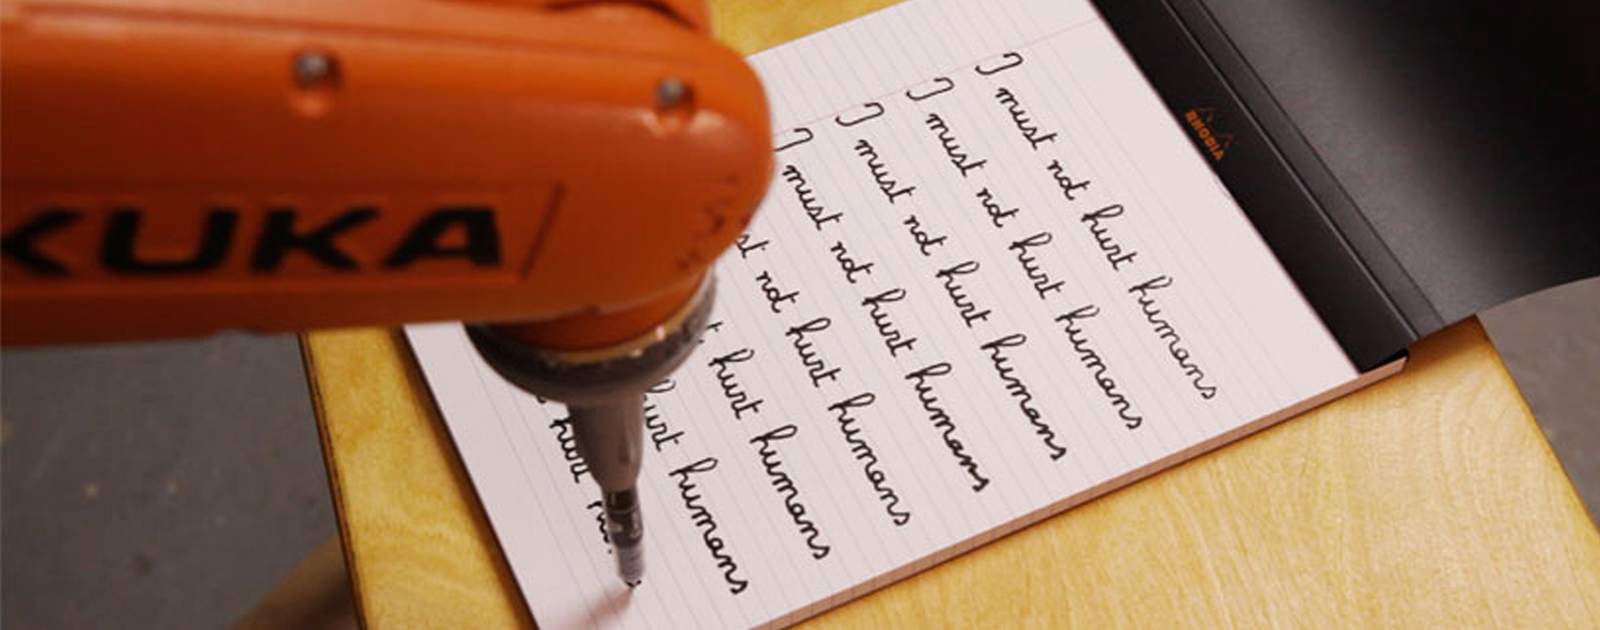 KUKA
RHODIA
I must not hurt humans
I must not hurt humans
I must not hurt humans
I must not hurt humans
st not hurt humans
hurt humans
hurt humans
hurt